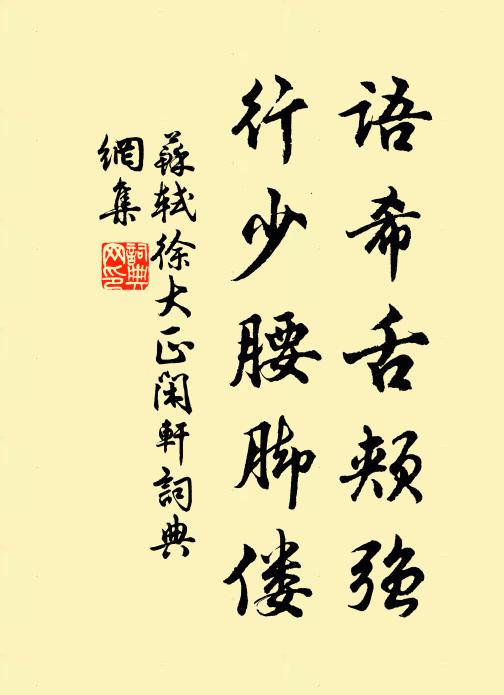 語希舌頰強
行少腰脚偻
蘇軾徐大正閑軒詞典
網集
詞典
网印